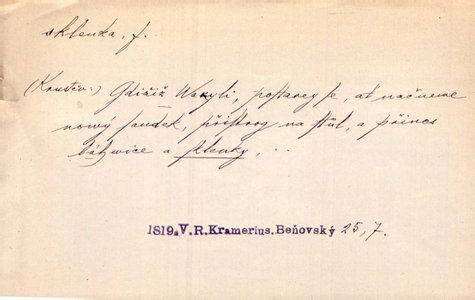 sklenka, f.
(Krustev:) Gdižiž Wasyli, postarey se, ať načneme
nowý saudek, přistrog na stůl, a přines
lahwice a sklenky, ..
1819a V.R.Kramerius.Beňovský 25, 7.